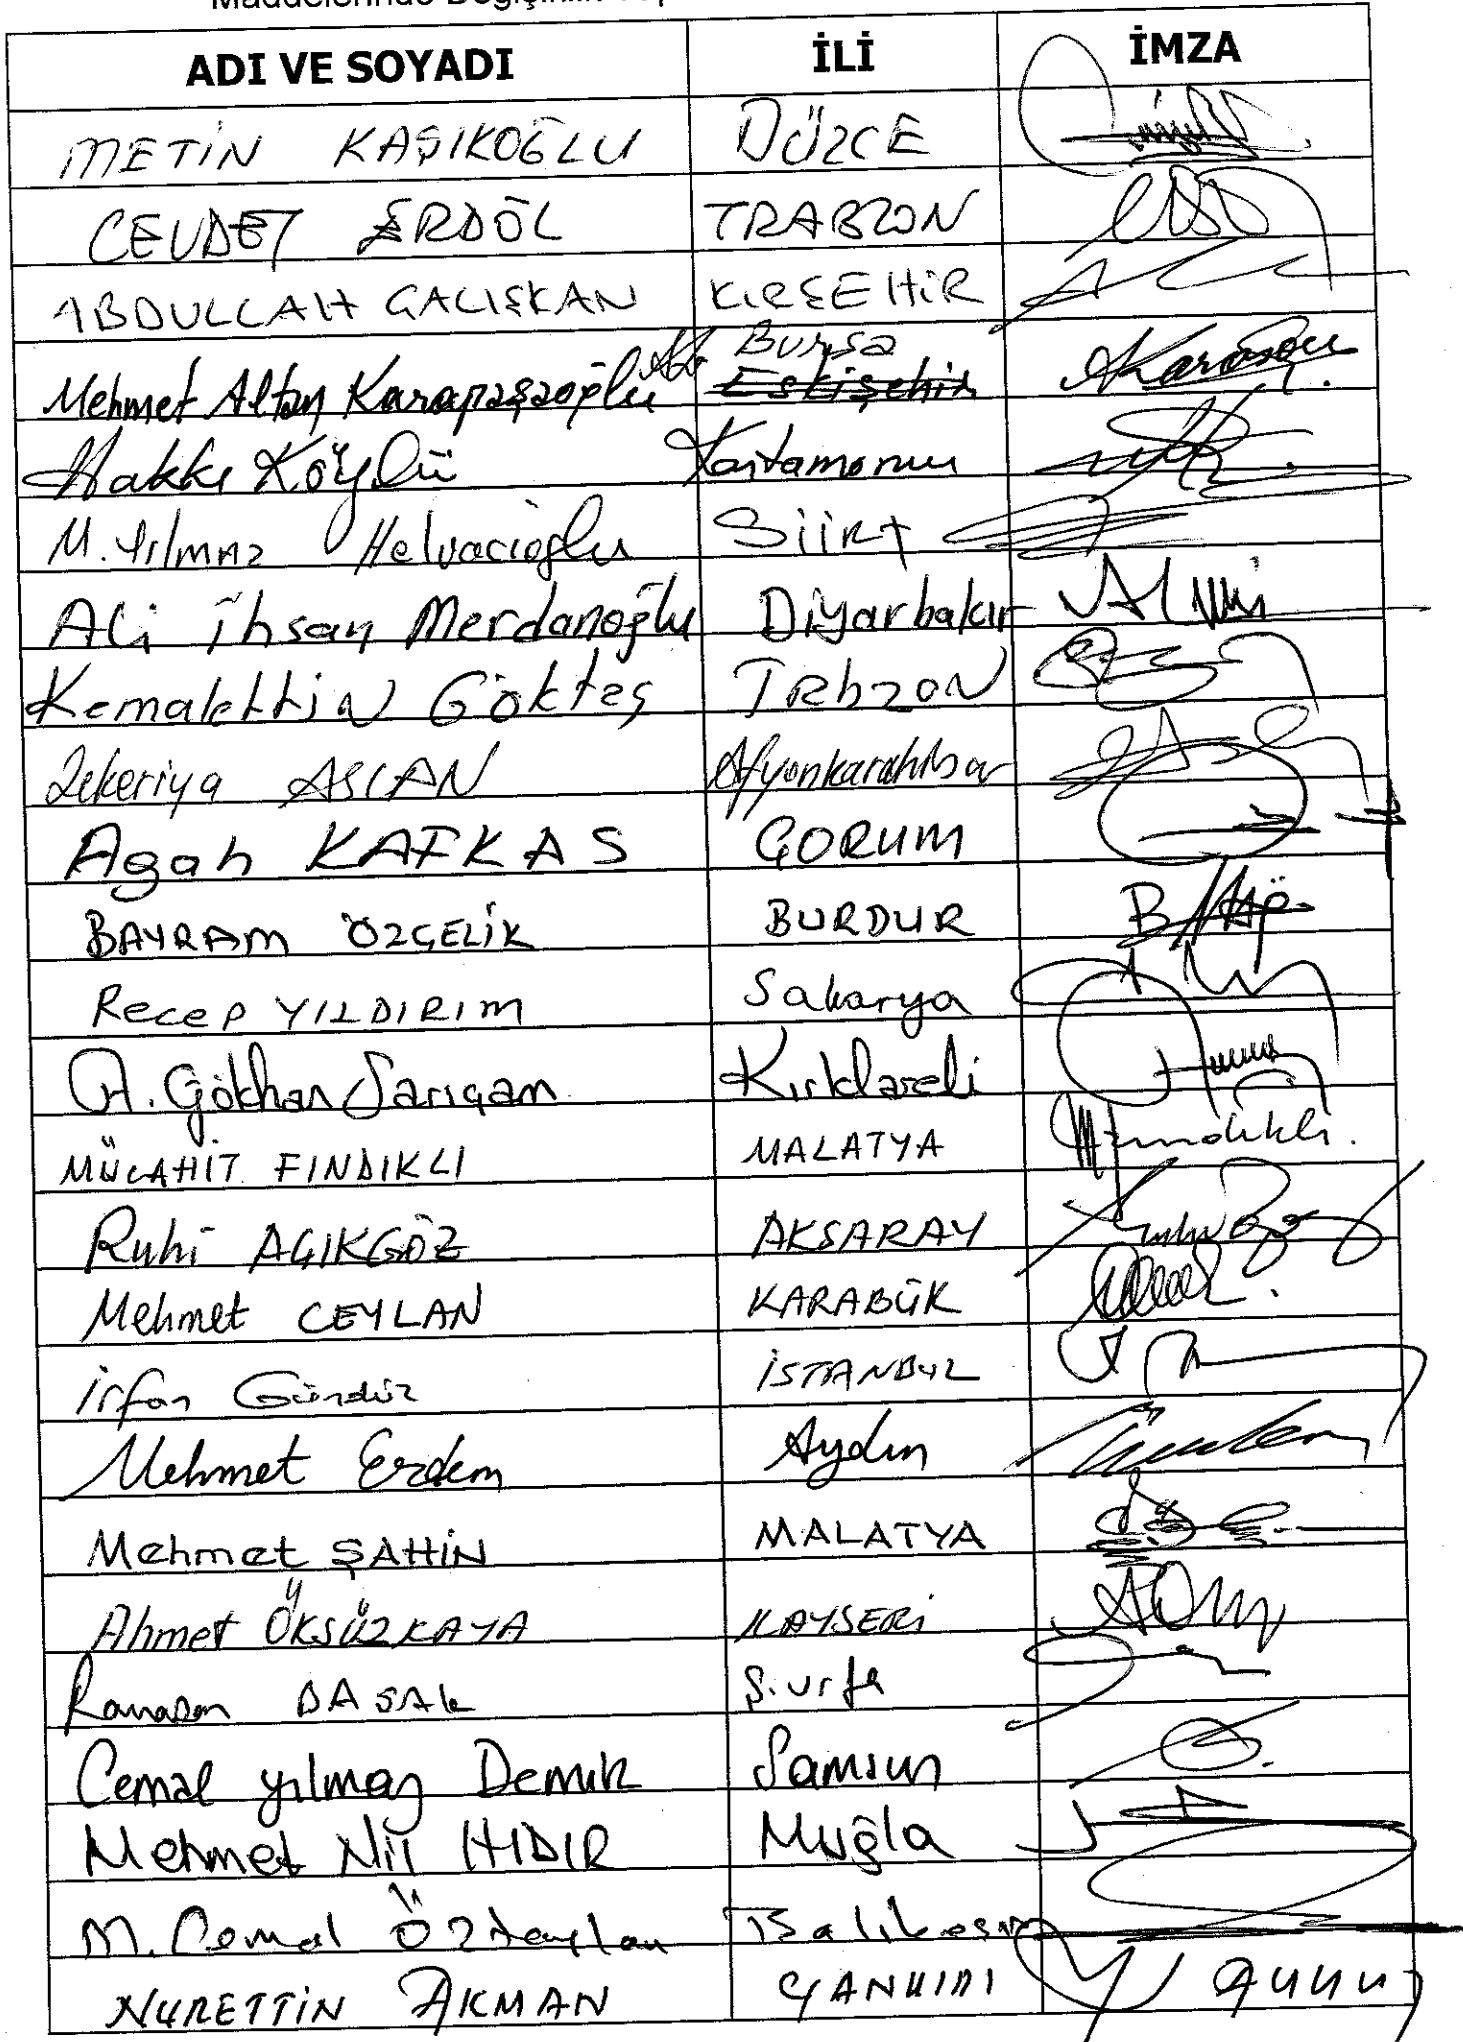 Maddelerinde Değişiklik
ADI VE SOYADI İLİ İMZA
METİN KAŞIKOĞLU DÜZCE
CEVDET ERDÖL TRABZON
ABDULLAH ÇALIŞKAN KIRŞEHİR
Mehmet Altan Karapaşaoğlu Bursa Eskişehir
Hakkı Köylü Kastamonu
M. Yılmaz Helvacıoğlu Siirt
Ali İhsan Merdanoğlu Diyarbakır
Kemalettin Göktaş Trabzon
Zekeriya ASLAN Afyonkarahisar
Agah KAFKAS ÇORUM
BAYRAM ÖZÇELİK BURDUR
Recep YILDIRIM Sakarya
A. Gökhan Sarıçam Kırklareli
MÜCAHİT FINDIKLI MALATYA
Ruhi AÇIKGÖZ AKSARAY
Mehmet CEYLAN KARABÜK
İrfan Gündüz İSTANBUL
Mehmet Erdem Aydın
Mehmet ŞAHİN MALATYA
Ahmet ÖKSÜZKAYA KAYSERİ
Ramazan BAŞAK Ş.urfa
Cemal Yılmaz Demir Samsun
Mehmet Nil HIDIR Muğla
M. Cemal Öztaylan Balıkesir
NURETTİN AKMAN ÇANKIRI